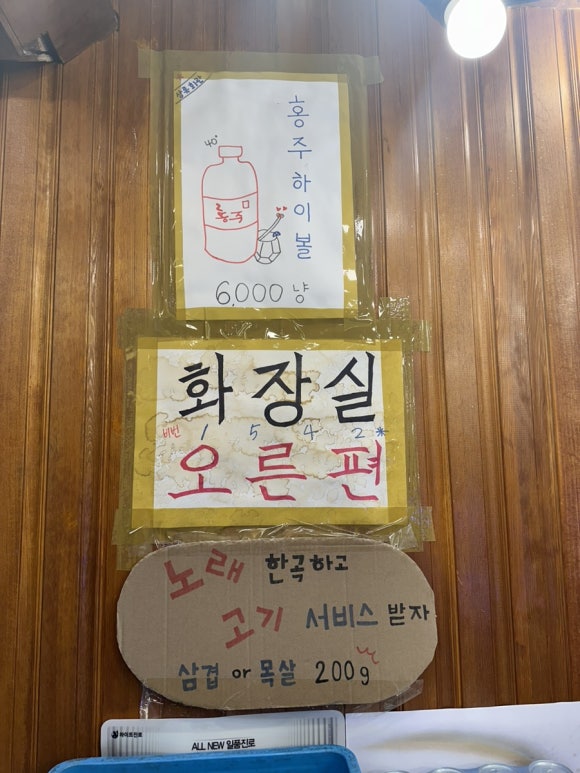 40°
홍주하이볼
홍주
6,000 냥
화장실
비번 1 5 4 2 *
오른편
노래 한곡하고
고기 서비스 받자
삼겹 or 목살 200g
하이트진로
ALL NEW 일품진로